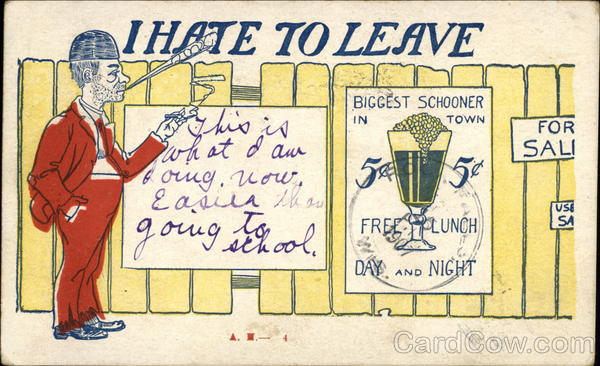 I HATE TO LEAVE
This is
what I am
doing, now.
Easier than
going to
school.
BIGGEST SCHOONER
IN TOWN
5¢ 5¢
FREE LUNCH
DAY AND NIGHT
FOR
SAL
USE
SA
A. M.— 4
CardCow.com